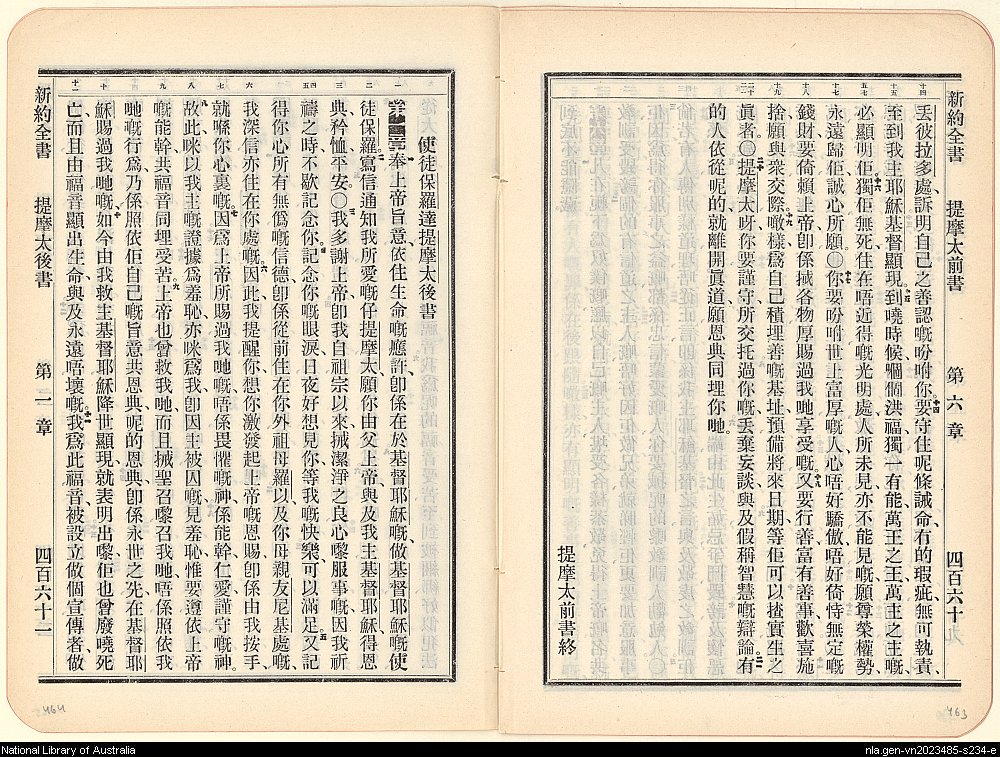 新約全書 提摩太前書 第六章 四百六十
十四
十五
十六
十七
十八
十九
二十
丟彼拉多處訴明自己之善認嘅吩咐你要守住呢條誡命冇的瑕疵無可執責
至到我主耶穌基督顯現到曉時候嗰個洪福獨一有能萬王之王萬主之主嘅
必顯明佢獨佢無死住在唔近得嘅光明處人所未見亦不能見嘅願尊榮權勢
永遠歸佢誠心所願〇你要吩咐世上富厚嘅人心唔好驕傲唔好倚恃無定嘅
錢財要倚賴上帝卽係搣各物厚賜過我哋享受嘅又要行善富有善事歡喜施
捨願與衆交際噉樣爲自己積埋善嘅基址預備將來日期等佢可以揸實生之
眞者〇提摩太呀你要謹守所交托過你嘅丟棄妄談與及假稱智慧嘅辯論有
的人依從呢的就離開眞道願恩典同埋你哋
提摩太前書終
使徒保羅達提摩太後書
奉上帝旨意依住生命嘅應許卽係在於基督耶穌嘅做基督耶穌嘅使
徒保羅寫信通知我所愛嘅仔提摩太願你由父上帝與及我主基督耶穌得恩
典矜恤平安〇我多謝上帝卽我自祖宗以來搣潔淨之良心嚟服事嘅因我祈
禱之時不歇記念你記念你嘅眼淚日夜好想見你等我嘅快樂可以滿足又記
得你心所有無僞嘅信德卽係從前住在你外祖母羅以及你母親友尼基處嘅
我深信亦住在你處嘅因此我提醒你想你激發起上帝嘅恩賜卽係由我按手
就喺你心裏嘅因爲上帝所賜過我哋嘅唔係畏懼嘅神係能幹仁愛謹守嘅神
故此咪以我主嘅證據爲羞恥亦咪爲我卽因主被囚嘅見羞恥惟要遵依上帝
嘅能幹共福音同埋受苦上帝也曾救我哋而且搣聖召嚟召我哋唔係照依我
哋嘅行爲乃係照依佢自己嘅旨意共恩典呢的恩典卽係永世之先在基督耶
穌賜過我哋嘅如今由我救主基督耶穌降世顯現就表明出嚟佢也曾廢曉死
亡而且由福音顯出生命與及永遠唔壞嘅我爲此福音被設立做個宣傳者做
一
二
三
四
五
六
七
八
九
十
十一
新約全書 提摩太後書 第一章 四百六十一
464
463
National Library of Australia
nla.gen-vn2023485-s234-e